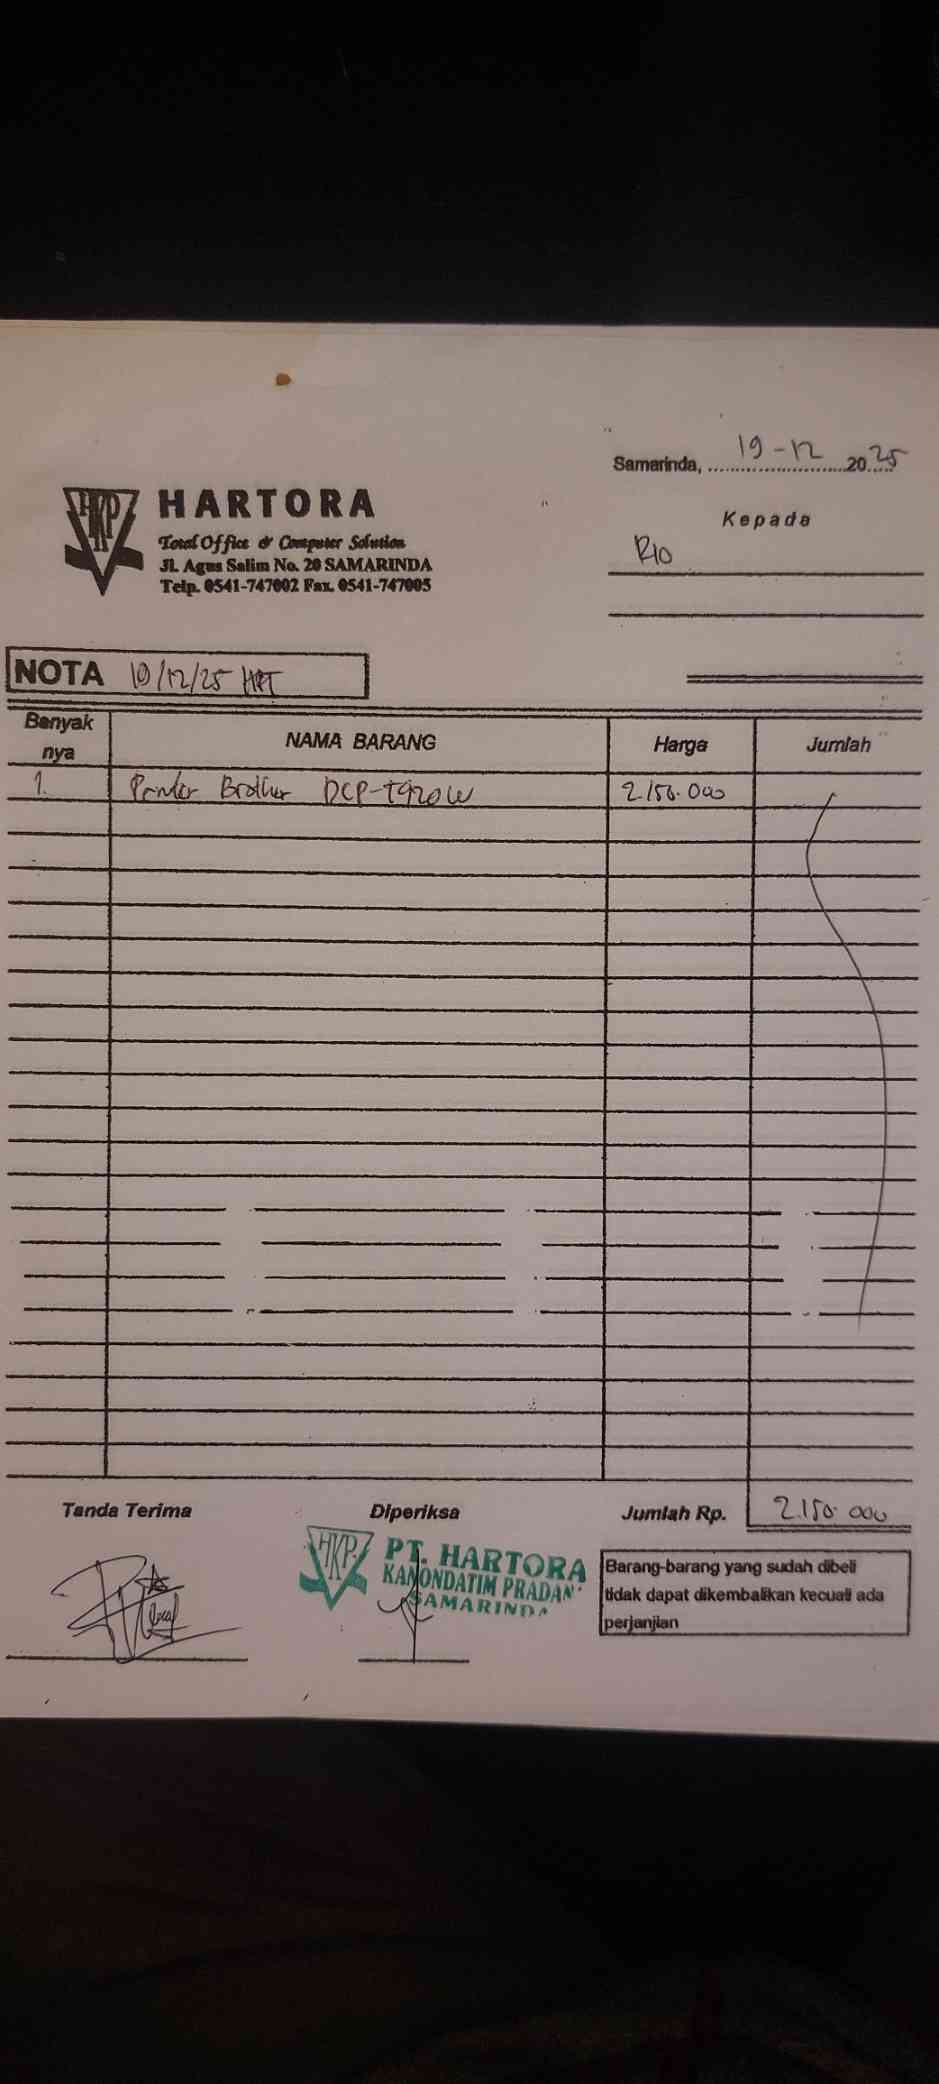 Samarinda, 19-12 2025
HKP
HARTORA
Total Office & Computer Solution
Jl. Agus Salim No. 20 SAMARINDA
Telp. 0541-747002 Fax. 0541-747005
Kepada
RIO
NOTA 19/12/25 HPT
Banyak nya NAMA BARANG Harga Jumlah
1. Printer Brother DCP-T920W 2.150.000
Tanda Terima Diperiksa Jumlah Rp. 2.150.000
HKP PT. HARTORA
KANONDATIM PRADAN
SAMARINDA
Barang-barang yang sudah dibeli
tidak dapat dikembalikan kecuali ada
perjanjian